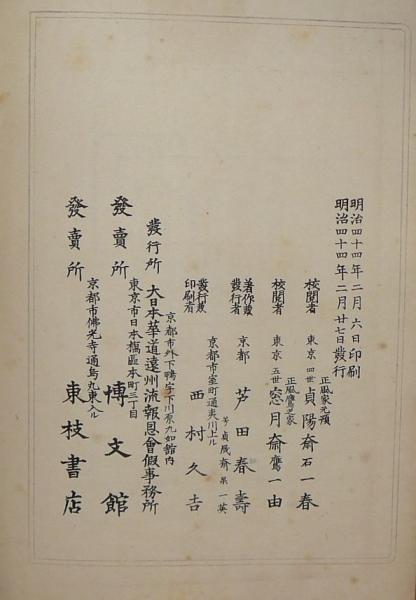 明治四十四年二月六日印刷
明治四十四年二月廿七日發行
校閲者 東京 四世 正風家元預 貞陽斎石一春
校閲者 東京 五世 正風鷹之家 窓月斎鷹一由
著作兼發行者 京都 芦田春壽
号貞成斎 一英
發行兼印刷者 京都市室町通夷川上ル 西村久吉
京都市外下鴨字下川原九如舘内
發行所 大日本華道遠州流報恩會假事務所
東京市日本橋區本町三丁目
發賣所 博文館
京都市佛光寺通烏丸東入ル
發賣所 東枝書店